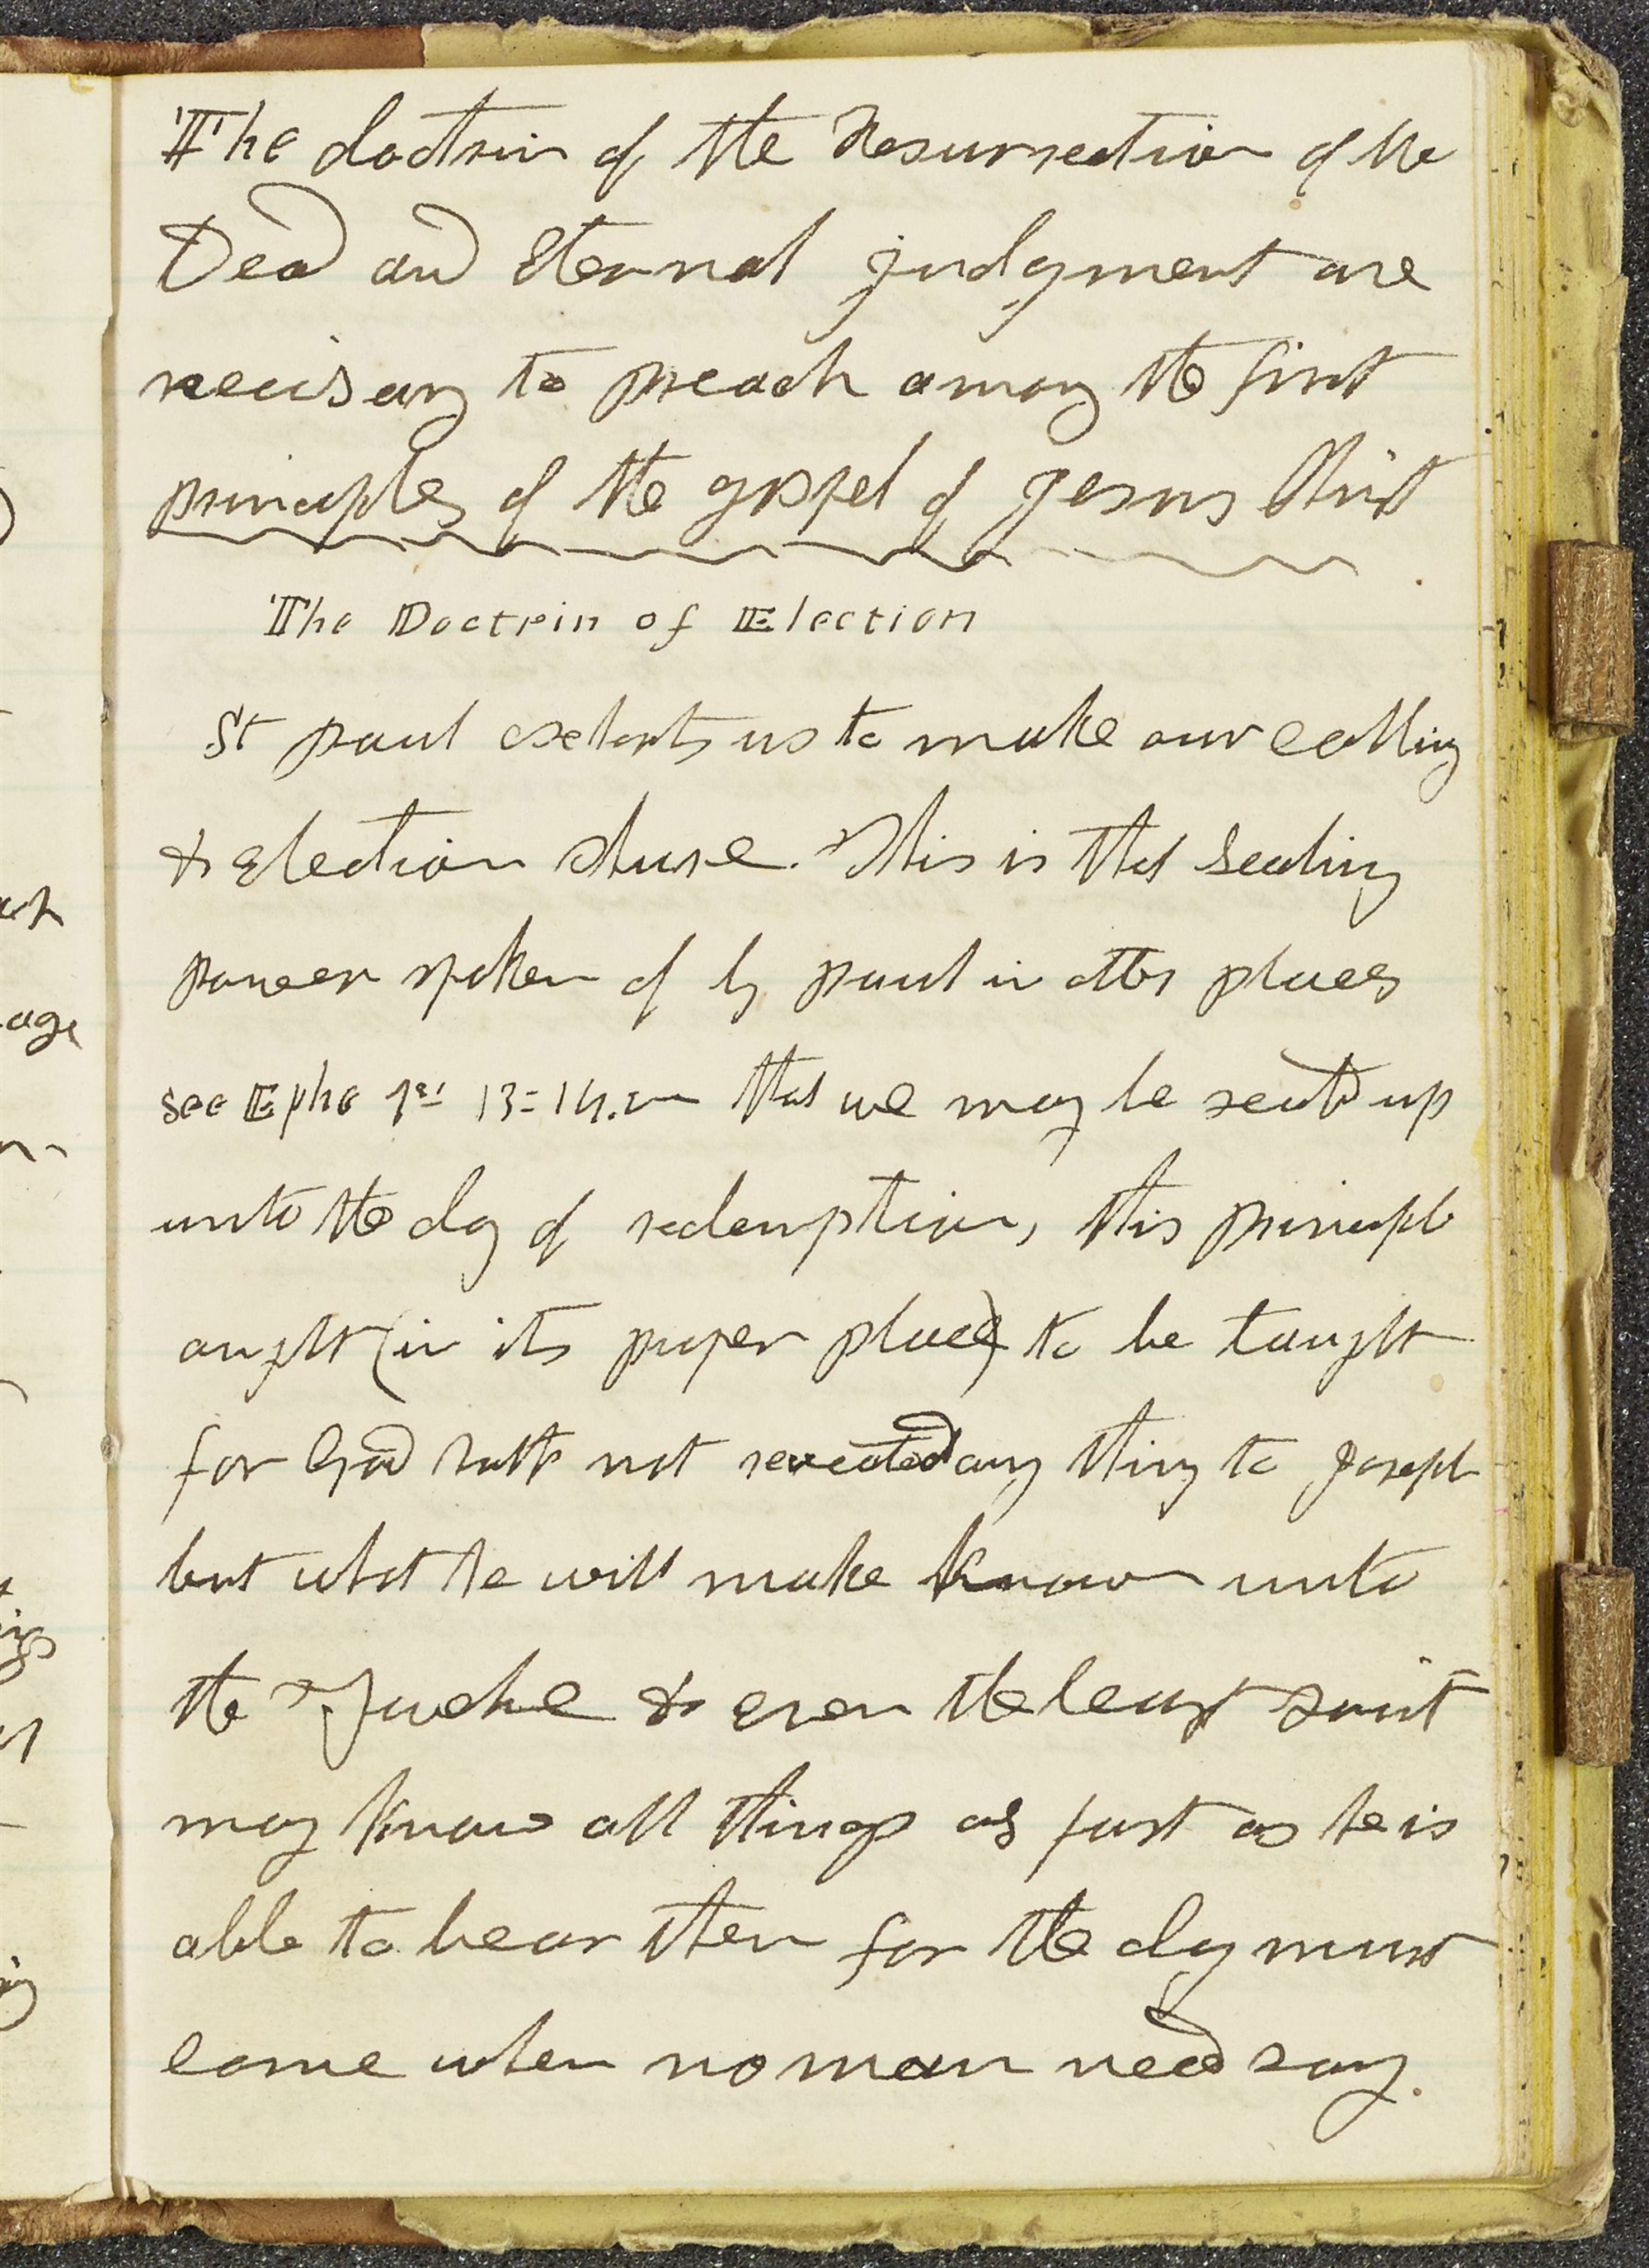 The doctrin of the Resurrection of the
Dead and Eternal judgment are
necisary to preach among the first
principles of the gospel of Jesus Christ
The Doctrin of Election
St paul exhorts us to make our calling
& Election shure. This is that sealing
power spoken of by paul in other places
see Ephe 1st 13=14. that we may be seald up
unto the day of redemption, this principle
ought (in its proper place) to be taught
for God hath not revealed any thing to Joseph
but what he will make known unto
the Twelve & even the least saint
may know all things as fast as he is
able to bear them for the day must
come when no man need say.